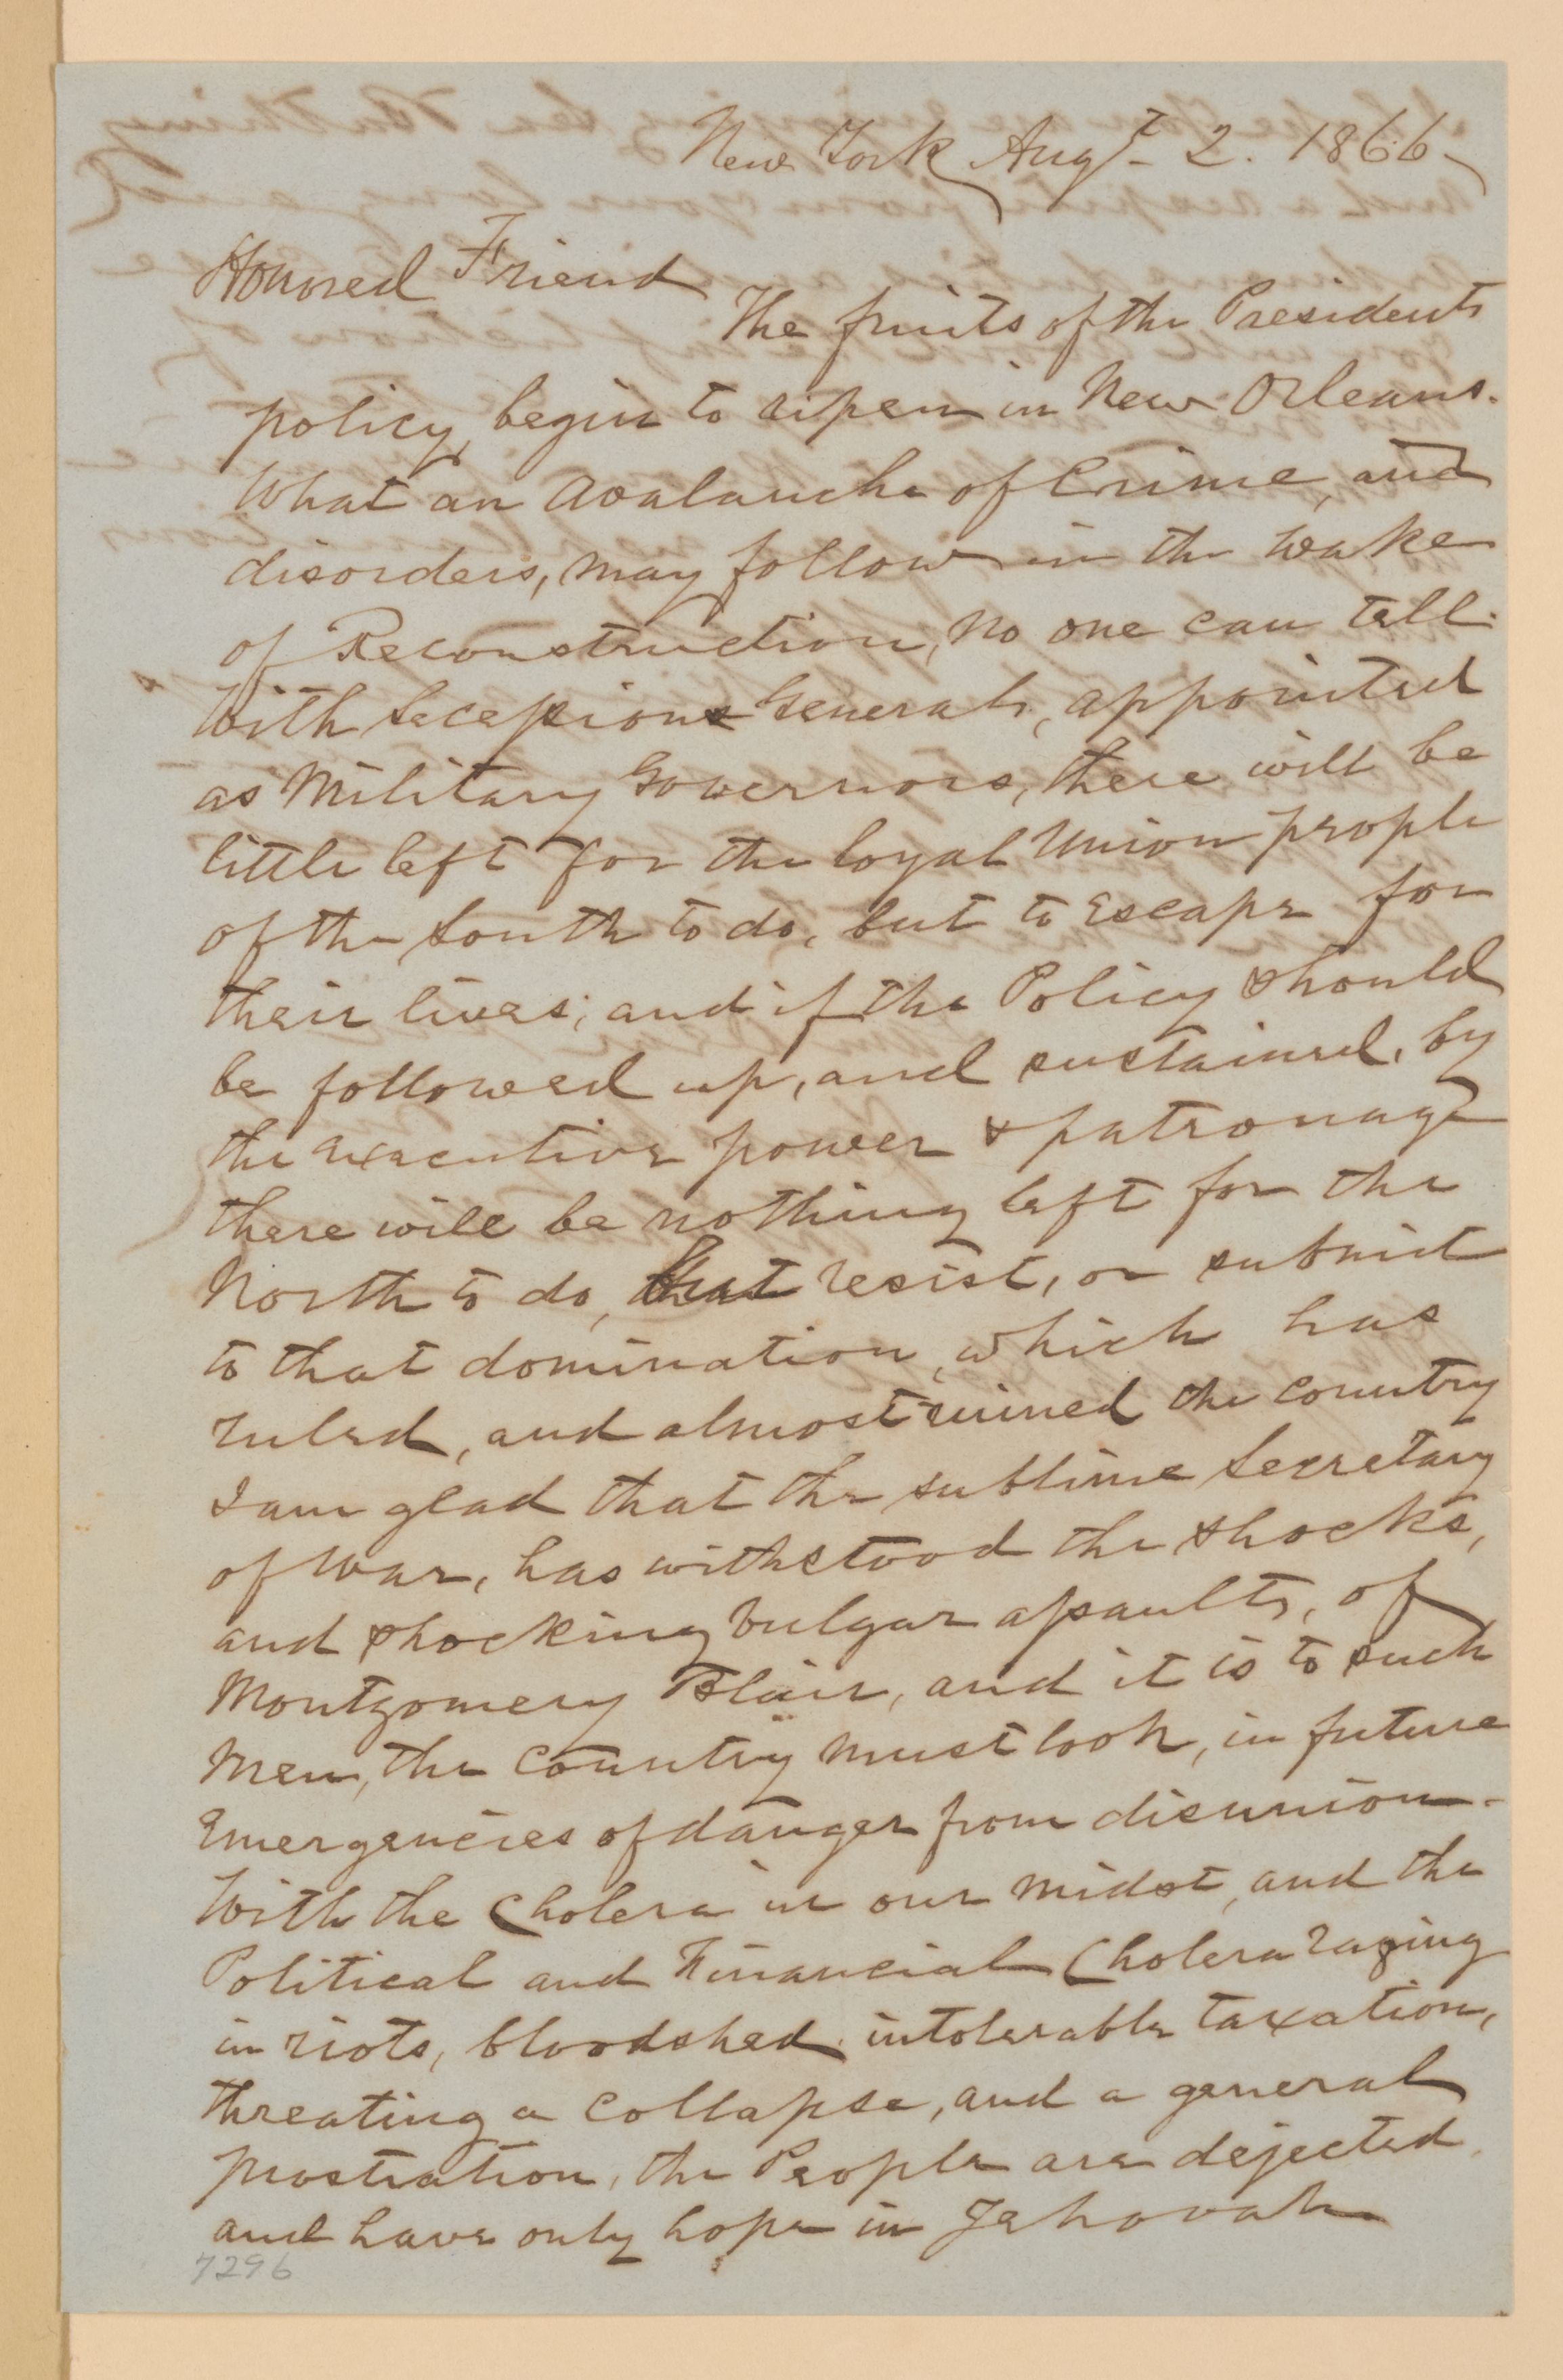 New York Augt 2. 1866
Honored Friend
The fruits of the Presidents
policy, begin to ripen in New Orleans.
What an avalanche of Crime, and
disorders, may follow in the wake
of Reconstruction, no one can tell.
With Secession Generals, appointed
as Military Governors, there will be
little left for the loyal Union people
of the South to do, but to escape for
their lives; and if the Policy should
be followed up, and sustained, by
the executive power & patronage
there will be nothing left for the
North to do, but resist, or submit
to that domination, which has
ruled, and almost ruined the country
I am glad that the sublime Secretary
of War, has withstood the shocks,
and shocking vulgar assaults, of
Montgomery Blair, and it is to such
Men, the Country must look, in future
Emergencies of danger from disunion.
With the Cholera in our midst, and the
Political and Financial Cholera raging
in riots, bloodshed, intolerable taxation,
threating a collapse, and a general
prostration, the People are dejected
and have only hope in Jehovah
7296